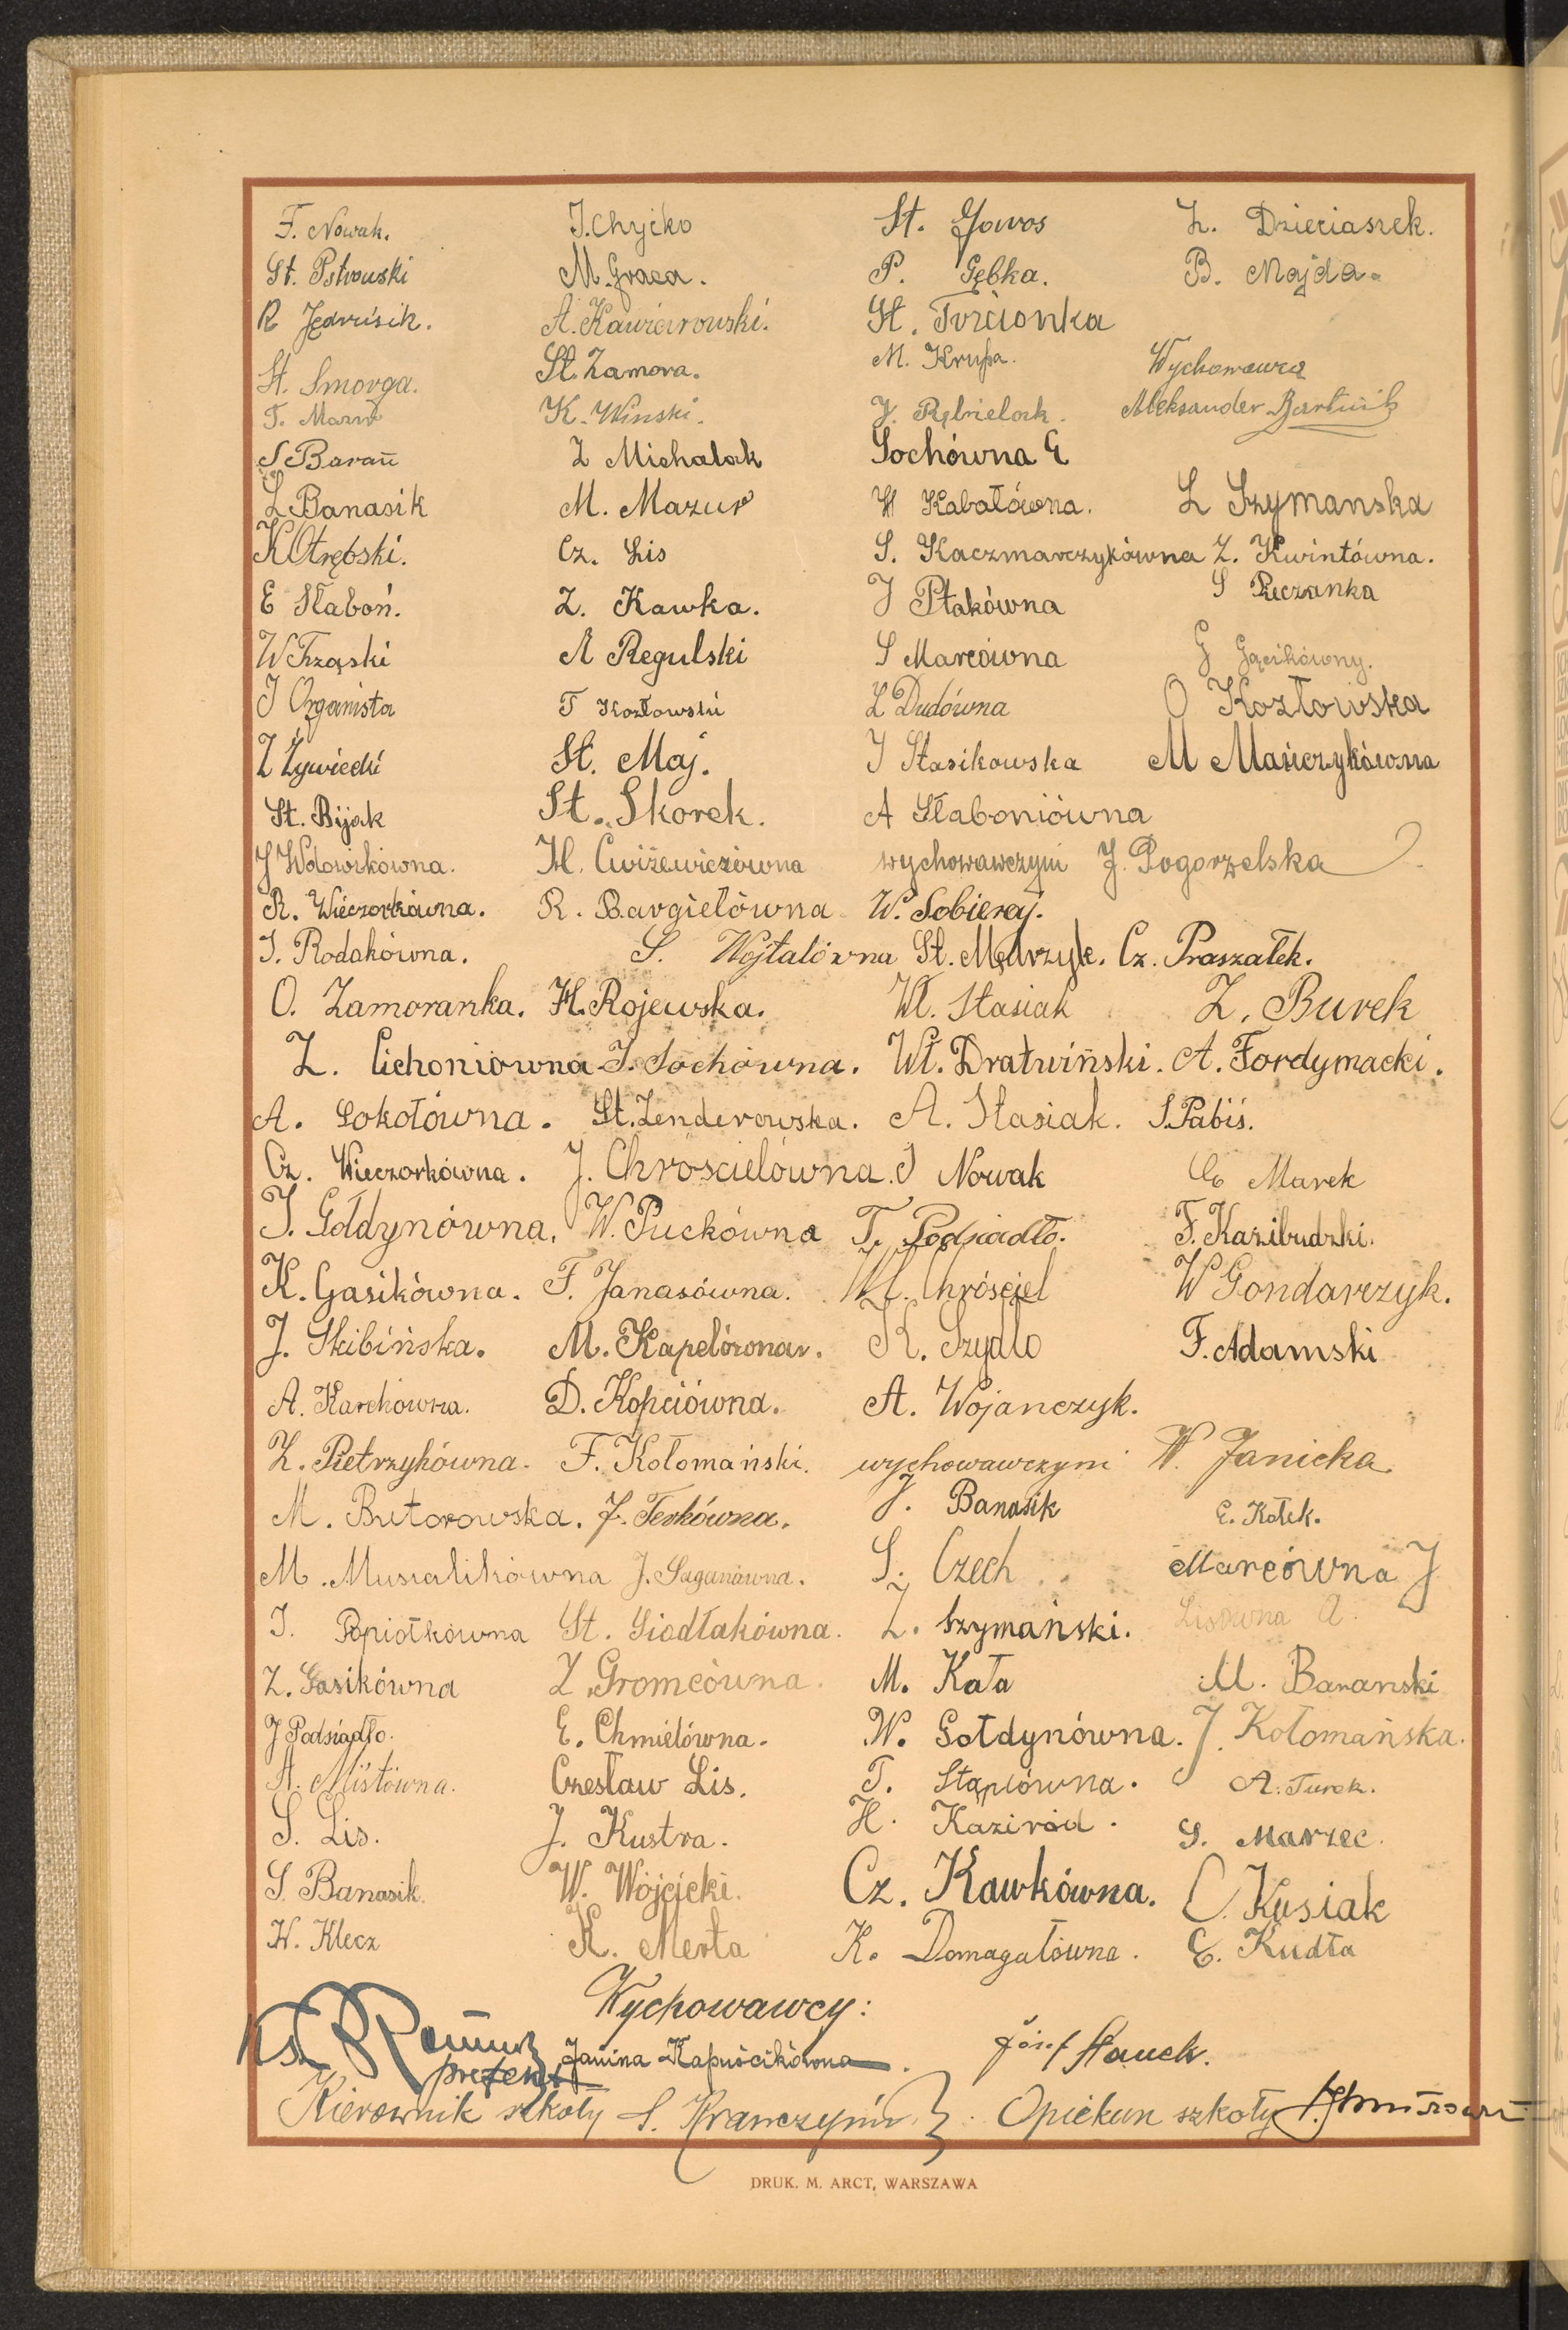 F. Nowak. J. Chyćko St. Gowos Z. Dzieciaszek.
St. Pstrowski M. Graca. P. Gębka. B. Majda.
R Jędrusik. A. Kawiorowski. St. Tyrcionka
St. Smorga. St. Zamora. M. Krupa. Wychowawca
T. Mazur K. Winski. J. Rębielak. Aleksander Bartnik
S Barań Z Michalak Sochówna E
L Banasik M. Mazur H Kabałówna. L Szymanska
K Otrębski. Cz. Lis S. Kaczmarczykówna Z. Kwintówna.
E Słaboń. Z. Kawka. J Ptakówna S Pieczanka
W Trząski A Regulski S Marcówna G Gąsikówny.
J Organista T Kozłowski L Dudówna O Kozłowska
Z Żywiecki St. Maj. J Stasikowska M Mańczykówna
St. Bijak St. Skorek. A Słaboniówna
J Wołowikówna. H. Ćwiżewiczówna wychowawczyni J. Pogorzelska
R. Wieczorkówna. R. Bargiełówna W. Sobieraj.
J. Rodakówna. S. Wojtalówna St. Mędrzyk. Cz. Praszałek.
O. Zamoranka. H. Rojewska. Wł. Stasiak Z. Burek
Z. Cichoniówna J. Sochówna. Wł. Dratwiński. A. Fordymacki.
A. Sokołówna. St. Zenderowska. A. Stasiak. S. Pabiś.
Cz. Wieczorkówna. J. Chróścielówna. J Nowak Cz Marek
J. Gołdynówna. W. Puckówna T. Podsiadło. F. Kazibudzki.
K. Gasikówna. F. Janasówna. Wł. Chróściel W Gondarczyk.
J. Skibińska. M. Kapelówna. K. Szydło F. Adamski
A. Karchówna. D. Kopciówna. A. Wojanczyk.
Z. Pietrzykówna. F. Kołomański. wychowawczyni W. Janicka
M. Butorowska. J. Terkówna. J. Banasik E. Kołek.
M. Musialikówna J. Sagunówna. S. Czech Marcówna J
J. Popiołkówna St. Siodłakówna. Z. Szymański. Lisówna A.
Z. Gasikówna Z. Gromcówna. M. Kała M. Baranski
J Podsiadło. E. Chmielówna. W. Gołdynówna. J. Kołomańska.
A. Mistówna. Czesław Lis. T. Stąpiówna. A. Turek.
S. Lis. J. Kustra. H. Kaziród. S. Marzec.
S. Banasik. W. Wójcicki. Cz. Kawkówna. C. Kusiak
W. Klecz K. Merta K. Domagałówna. E. Kudła
Wychowawcy:
Ks. prefekt Janina Kapuścikówna. Józef Stauch.
Kierownik szkoły S. Krawczyński. Opiekun szkoły
DRUK. M. ARCT, WARSZAWA